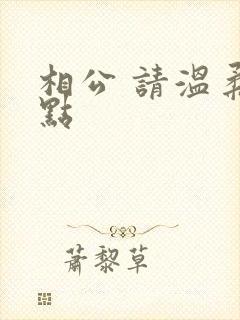 相公 請溫柔
點
蕭黎草